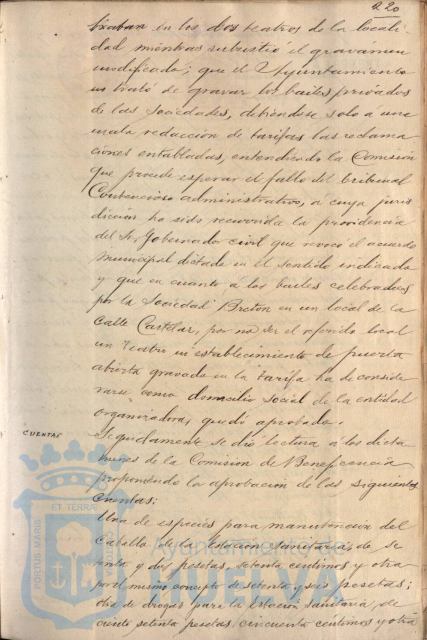 220
lizaban en los dos teatros de la locali-
dad mientras subsistió el gravamen
modificado; que el Ayuntamiento
no trató de gravar los bailes privados
de las Sociedades, debiendose solo a una
mala redacción de tarifas las reclama
ciones entabladas, entendiendo la Comisión
que procede esperar el fallo del tribunal
Contencioso administrativo, a cuya juris
dicción ha sido recurrida la providencia
del Sr. Gobernador civil que revocó el acuerdo
municipal dictado en el sentido indicado
y que en cuanto a los bailes celebrados
por la Sociedad Breton en un local de la
Calle Castelar, por no ser el referido local
un teatro ni establecimiento de puerta
abierta gravado en la tarifa ha de conside
rarse como domicilio social de la entidad
organizadora, quedó aprobado.
CUENTAS
Seguidamente se dió lectura á los dicta
menes de la Comision de Beneficencia
proponiendo la aprobación de las siguientes
Cuentas:
Una de especies para manutencion del
Caballo de la Estacion sanitaria, de se
tenta y dos pesetas, setenta centimos y otra
por el mismo concepto de setenta y seis pesetas;
otra de drogas para la Estacion sanitaria, de
ciento setenta pesetas, cincuenta centimos y otra
PORTUS MARIS ET TERRAE CUSTODIA
Ayuntamiento de
HUELVA